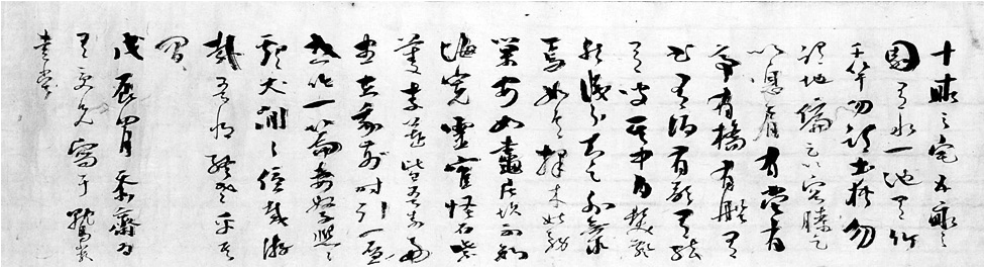 十畝之宅五畝之
園有水一池有竹
千竿勿謂土狹勿
謂地偏足以容膝足
以息肩有堂有
亭有橋有船有
書有酒有歌有絃
有叟其中白鬚飄
然識分知足外無求
焉如鳥擇木姑務
巢安如龜居坎不知
海寬靈鶴怪石紫
菱白蓮皆吾所好
盡在我前時引一盃
或吟一篇妻孥熙〻
雞犬閑〻優哉游
哉吾將終老乎其
間
戊辰月齋為
兄寫于
書堂